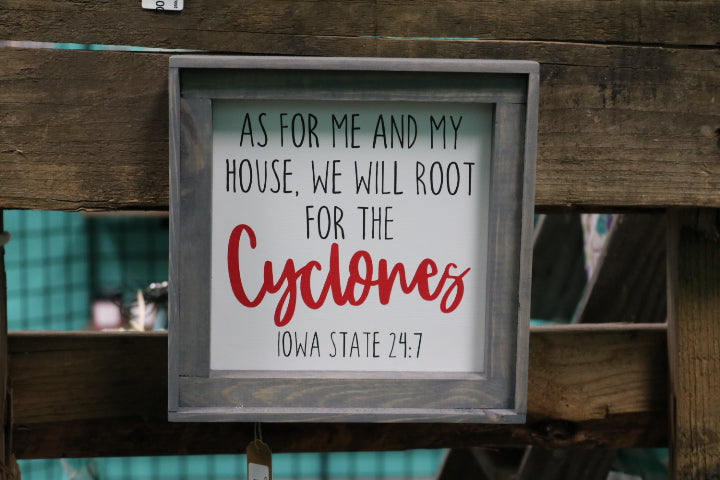 AS FOR ME AND MY
HOUSE, WE WILL ROOT
FOR THE
Cyclones
IOWA STATE 24:7